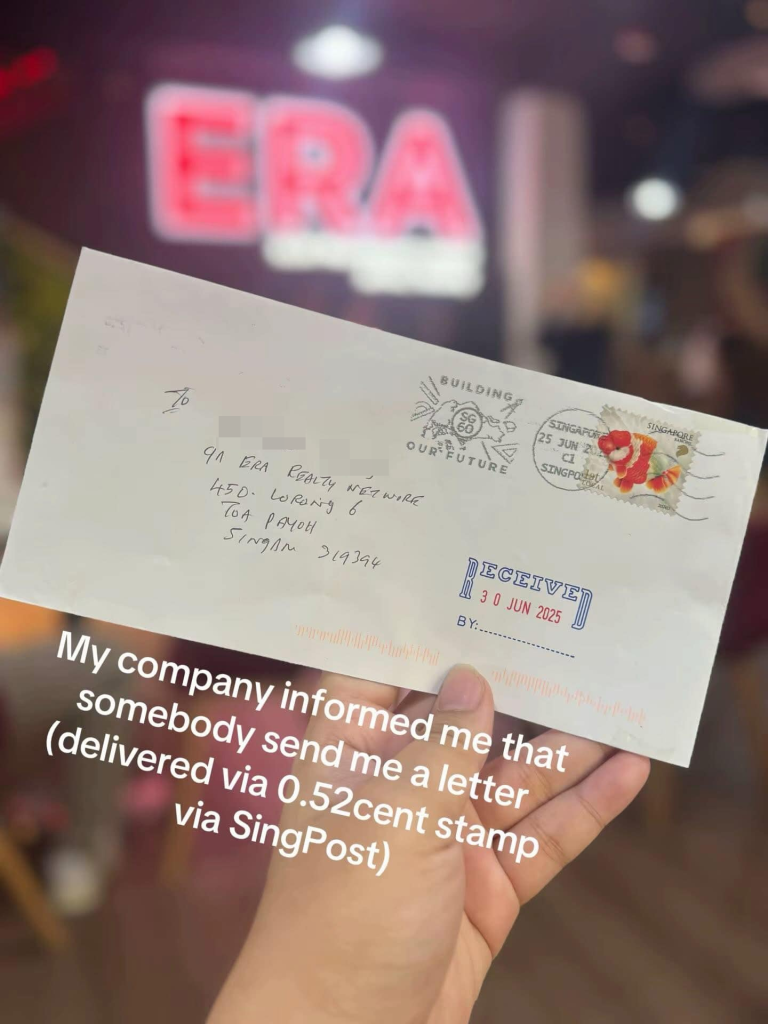 ERA
BUILDING
SG
60
OUR FUTURE
SINGAPORE
25 JUN
C1
SINGPOST
SINGAPORE
To
9A ERA REALTY NETWORK
450. LORONG 6
TOA PAYOH
319394
RECEIVED
30 JUN 2025
BY:
My company informed me that
somebody send me a letter
(delivered via 0.52cent stamp
via SingPost)